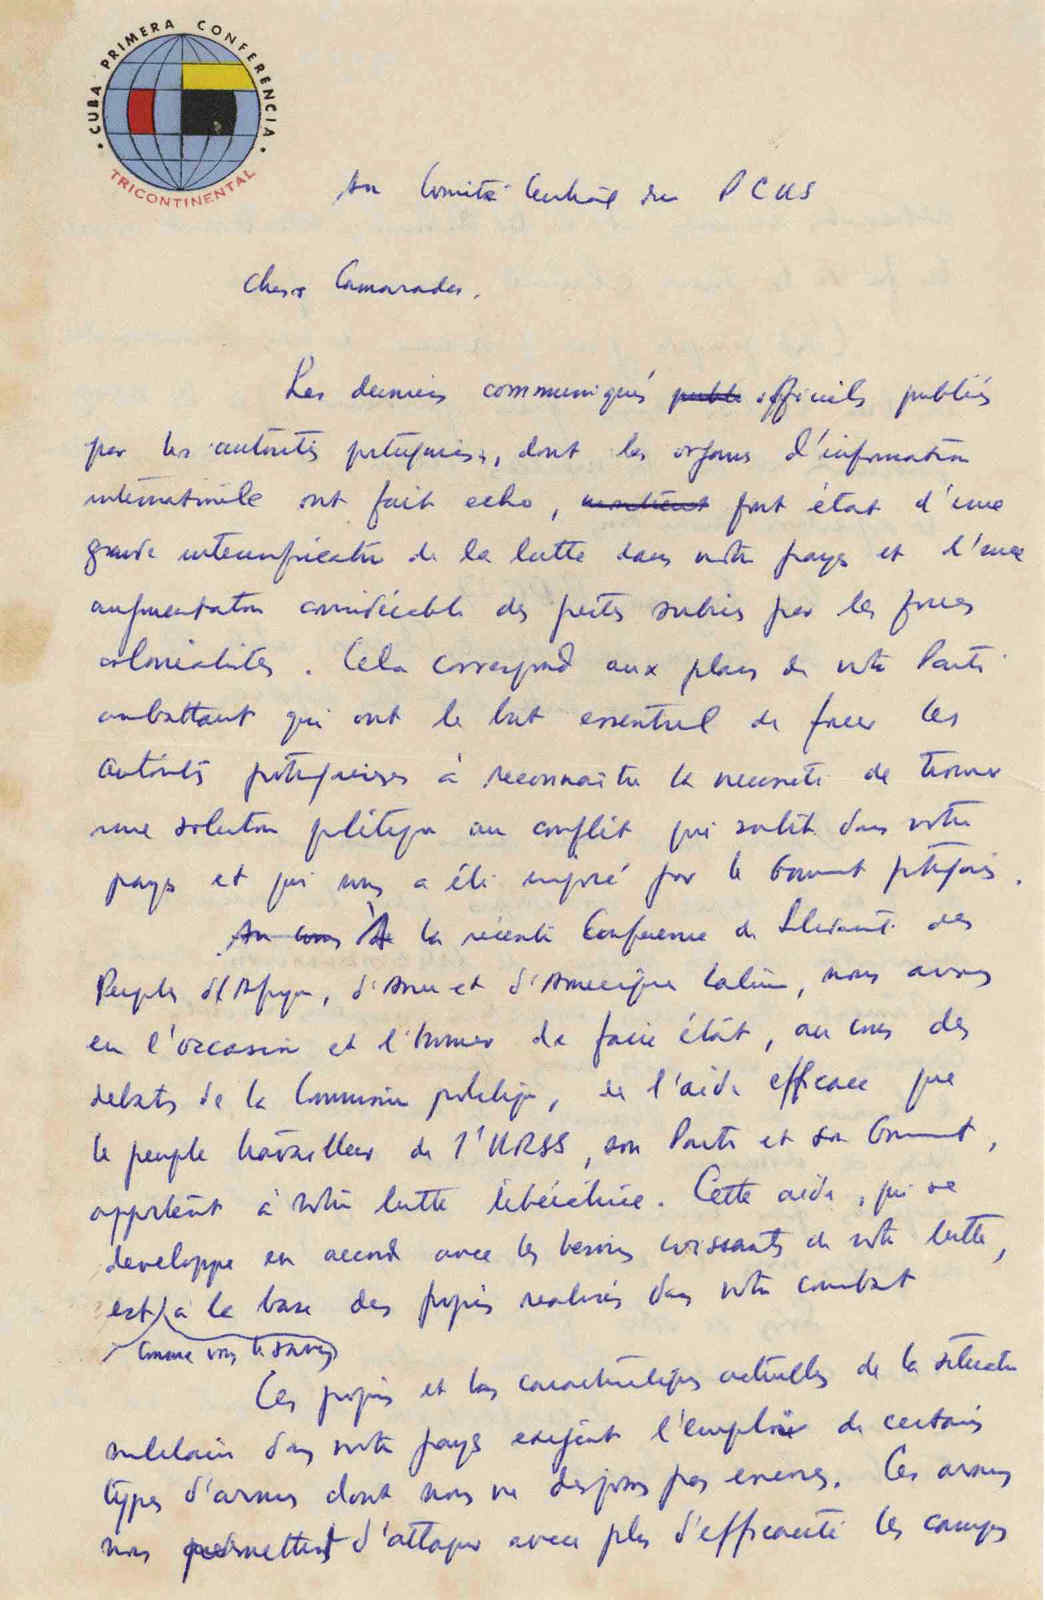 • CUBA PRIMERA CONFERENCIA •
TRICONTINENTAL
Au Comité Central du PCUS
Chers Camarades.
Les derniers communiqués publi officiels publiés
par les autorités portugaises, dont les organes d'information
internationale ont fait echo, font état d'une
grande intensification de la lutte dans notre pays et d'une
augmentation considérable des pertes subies par les forces
colonialistes. Cela correspond aux plans de notre Parti
combattant qui ont le but essentiel de forcer les
autorités portugaises à reconnaitre la necessité de trouver
une solution politique au conflit qui sevit dans notre
pays et qui nous a été imposé par le Gouvnt portugais.
Au cours A la récente Conference de Solidarité des
Peuples d'Afrique, d'Asie et d'Amerique Latine, nous avons
eu l'occasion et l'honneur de faire état, au cours des
debats de la Commission politique, de l'aide efficace que
le peuple travailleur de l'URSS, son Parti et son Gouvnt,
apportent à notre lutte libératrice. Cette aide, qui se
developpe en accord avec les besoins croissants de notre lutte,
est à la base des progrès realisés dans notre combat
comme vous le savez
Ces progrès et les caractéristiques actuelles de la situation
militaire dans notre pays exigent l'emploi de certains
types d'armes dont nous ne disposons pas encore. Ces armes
nous permettent d'attaquer avec plus d'efficacité les camps